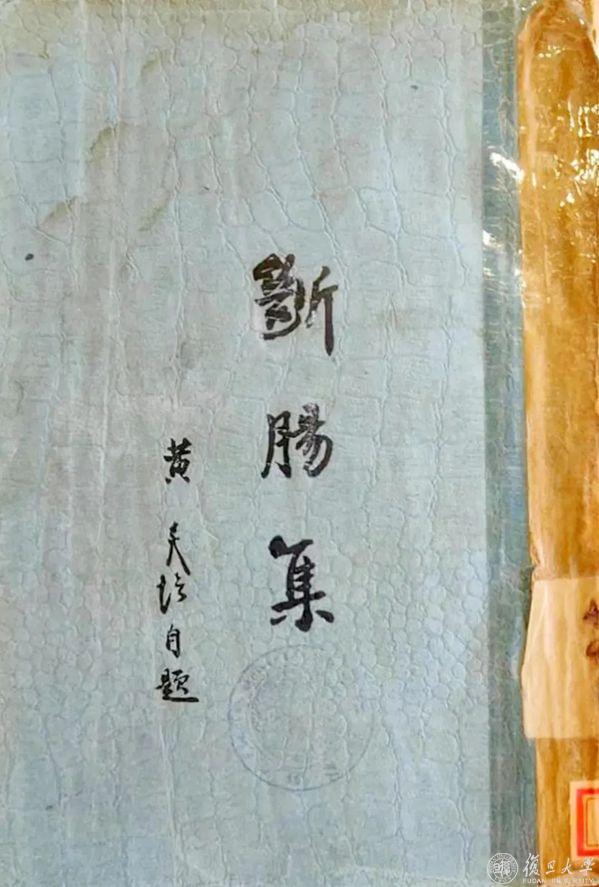 斷腸集
黄炎培自題
復旦大學
FUDAN UNIVERSITY